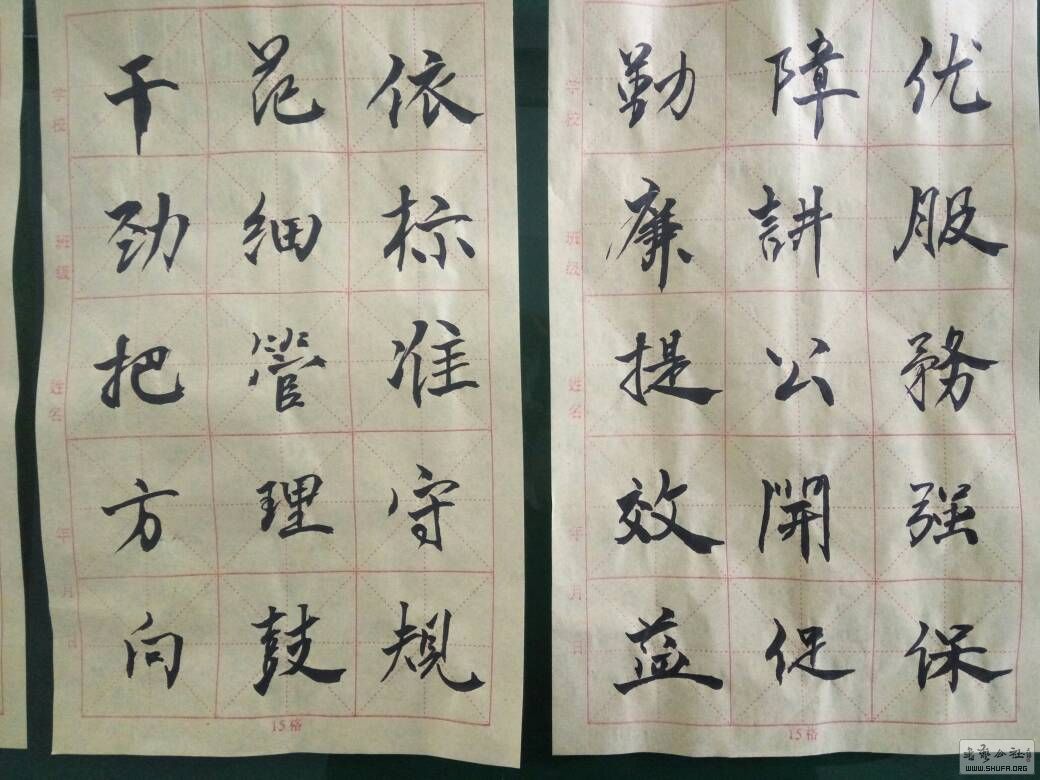 优服務强保
障讲公開促
勤廉提效益
学校 班级 姓名 年 月 日
15格
依标准守规
范细管理鼓
干劲把方向
学校 班级 姓名 年 月 日
15格
書藝公社
WWW.SHUFA.ORG